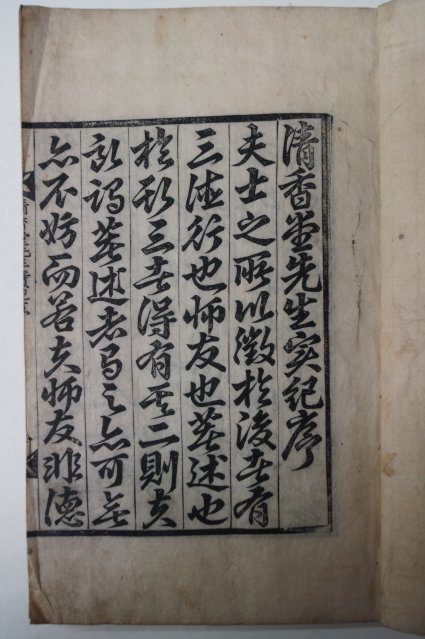 清香堂先生实紀序
夫士之所以徵於後者有
三德行也師友也著述也
於斯三者得有其二則其
所謂著述者爲之亦可無
亦不妨而若其師友非德